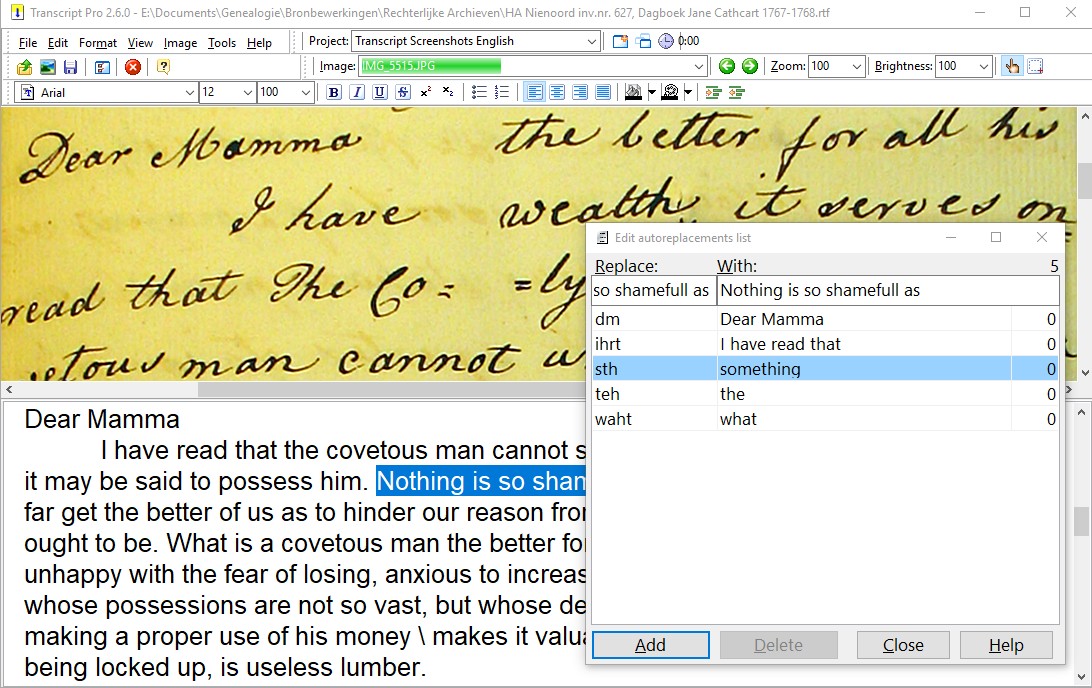 Transcript Pro 2.6.0 - E:\Documents\Genealogie\Bronbewerkingen\Rechterlijke Archieven\HA Nienoord inv.nr. 627, Dagboek Jane Cathcart 1767-1768.rtf
File Edit Format View Image Tools Help
Project: Transcript Screenshots English 0:00
Image: IMG_5515.JPG Zoom: 100 Brightness: 100
Arial 12 100 B I U S x² x₂
Dear Mamma
I have
read that The Co=
=vetous man cannot
the better for all his
wealth, it serves on
=ly
Edit autoreplacements list
Replace: With: 5
so shamefull as Nothing is so shamefull as
dm Dear Mamma 0
ihrt I have read that 0
sth something 0
teh the 0
waht what 0
Add Delete Close Help
Dear Mamma
I have read that the covetous man cannot s
it may be said to possess him. Nothing is so sham
far get the better of us as to hinder our reason from
ought to be. What is a covetous man the better for
unhappy with the fear of losing, anxious to increas
whose possessions are not so vast, but whose de
making a proper use of his money \ makes it valua
being locked up, is useless lumber.